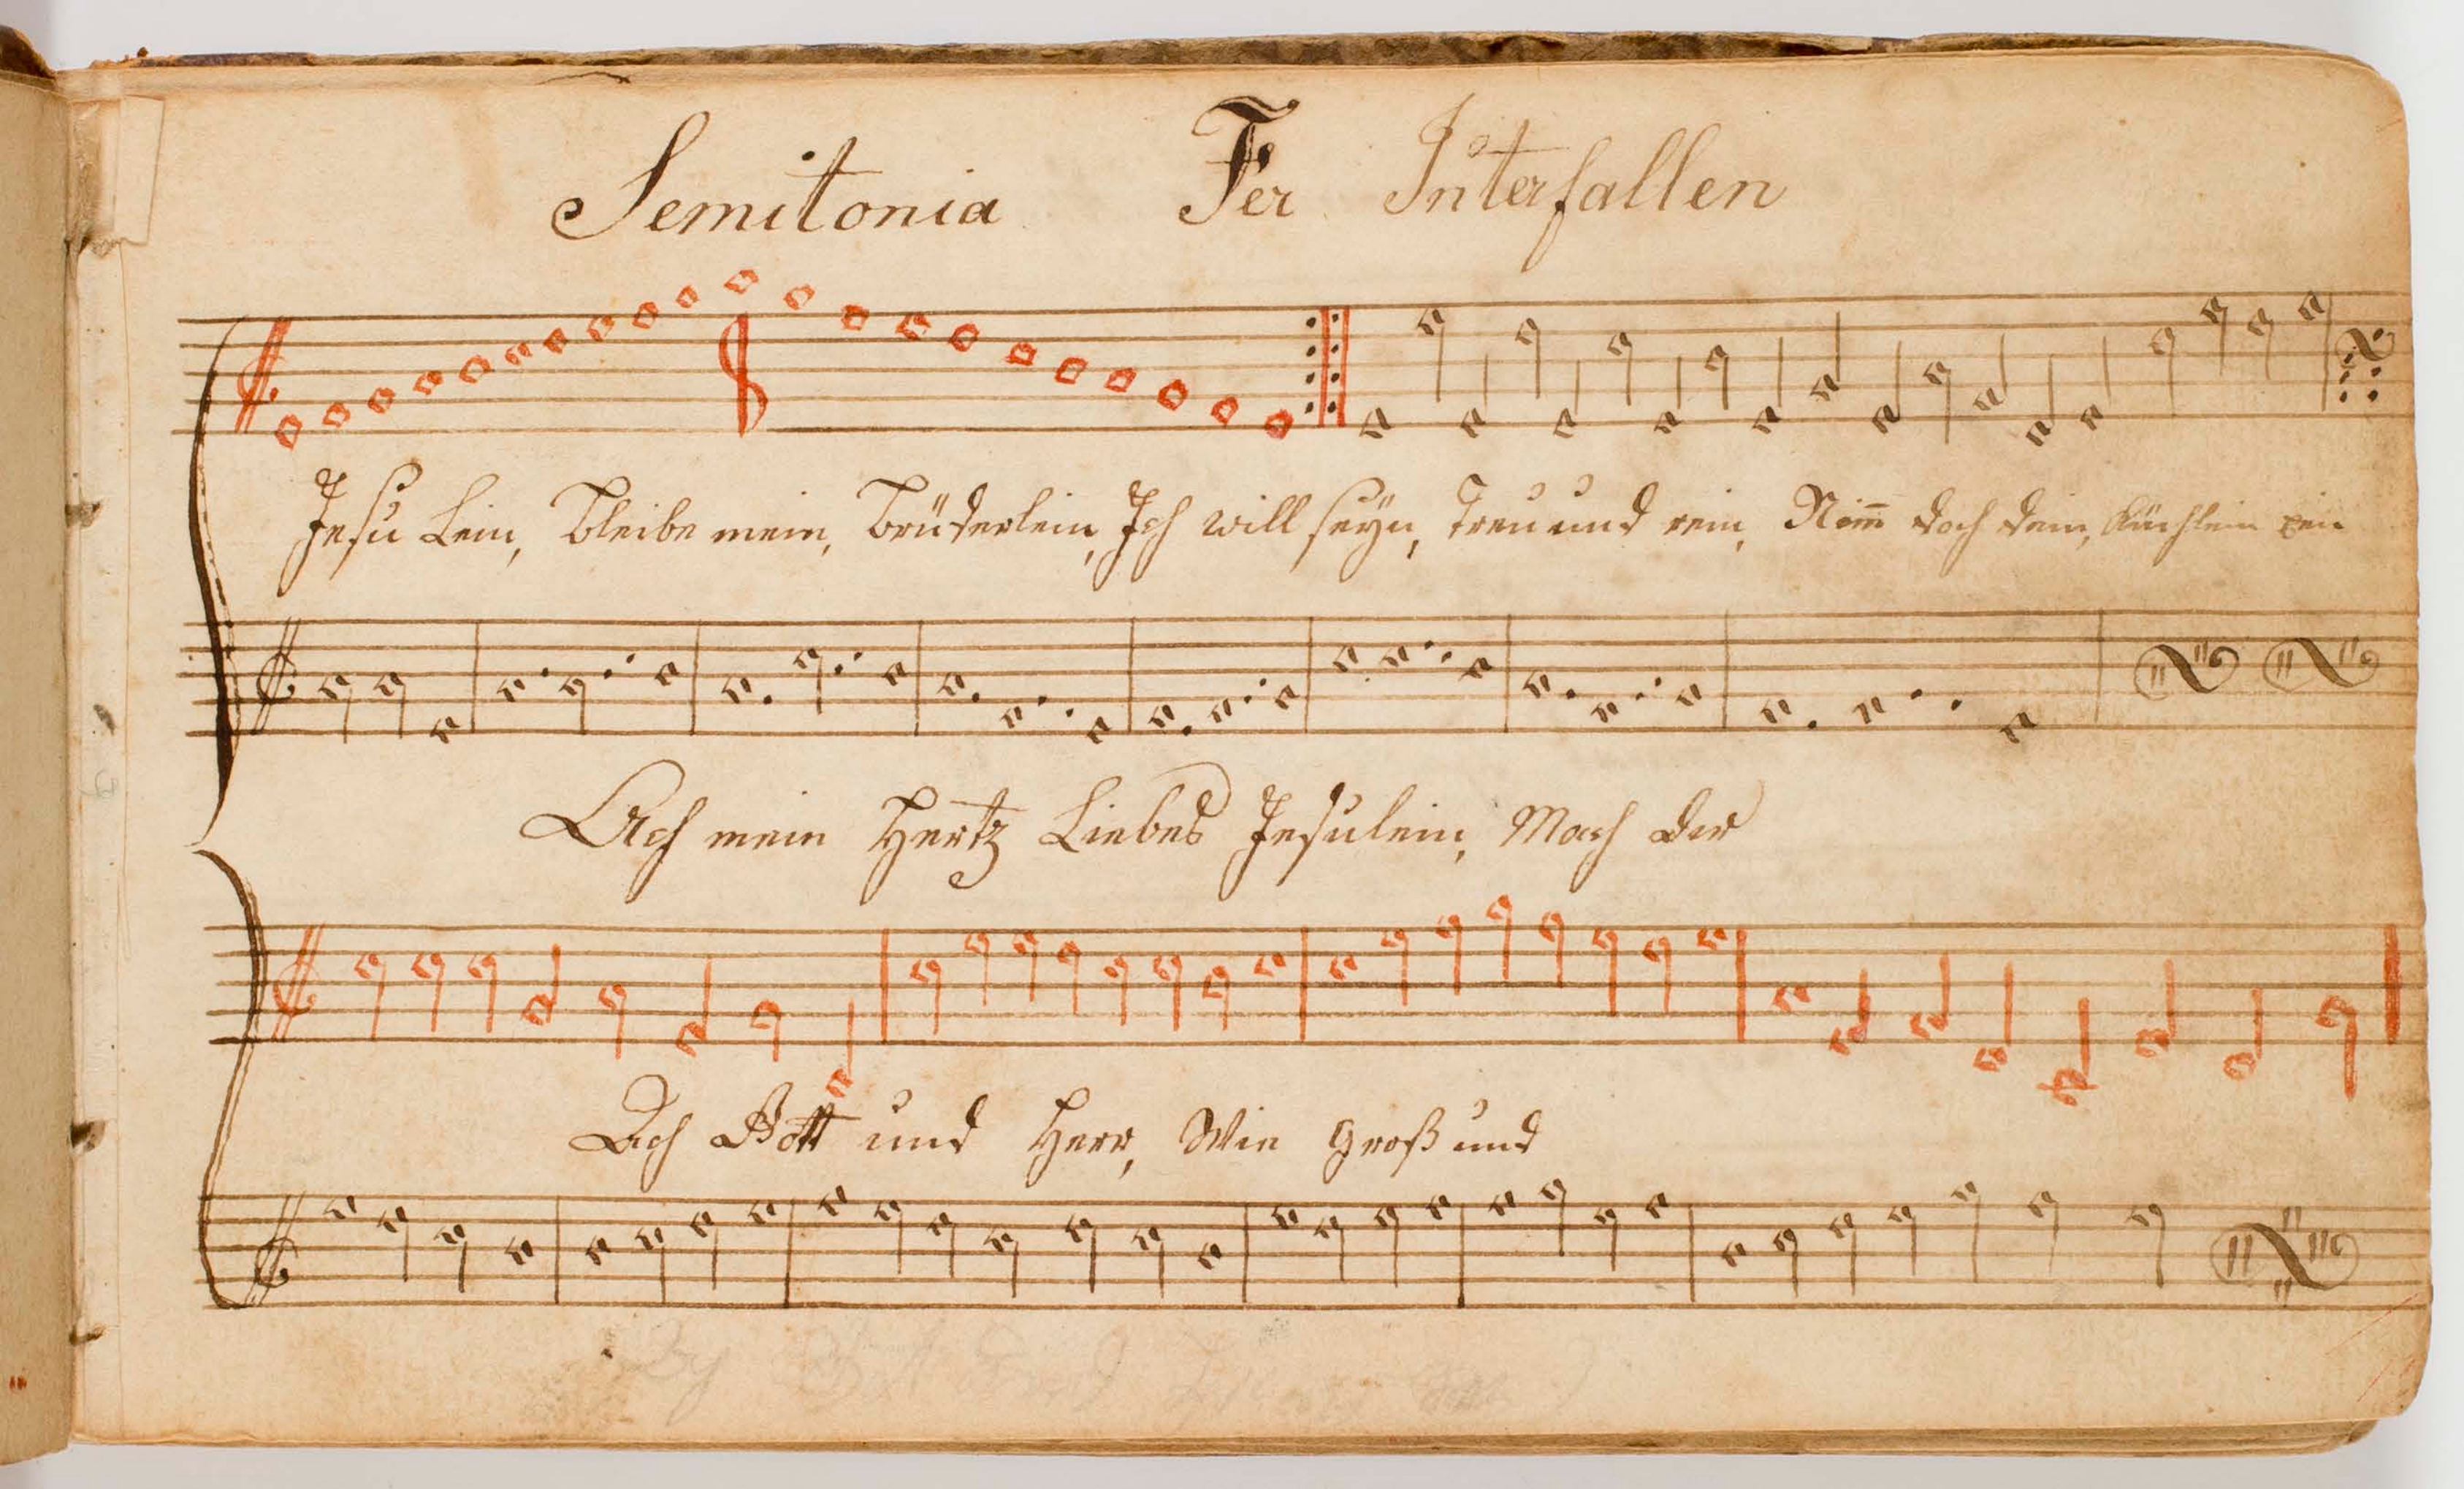 Semitonia Fer Interfallen
Jesu Lein, Bleibe mein, Brüderlein, Ich will seyn, Treu und rein, Nim̅ doch dein, Küchlein ein
Ach mein Hertz Liebes Jesulein, Mach der
Ach Gott und Herr, Wie Groß und